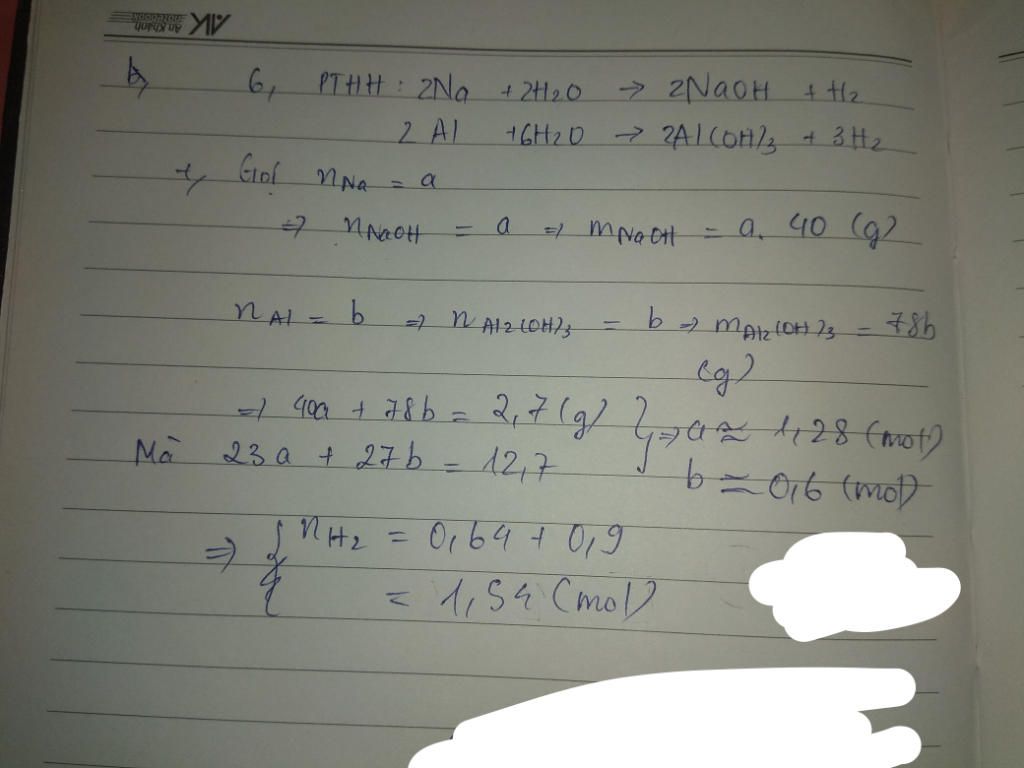 AK An Khánh notebook
b, 6, PTHH : 2Na + 2H2O → 2NaOH + H2
2 Al + 6H2O → 2Al(OH)3 + 3H2
+, Gọi nNa = a
⇒ nNaOH = a ⇒ mNaOH = a. 40 (g)
nAl = b ⇒ nAl2(OH)3 = b ⇒ mAl2(OH)3 = 78b
(g)
⇒ 40a + 78b = 2,7 (g) } ⇒ a ≈ 1,28 (mol)
Mà 23a + 27b = 12,7 b ≈ 0,6 (mol)
⇒ { nH2 = 0,64 + 0,9
= 1,54 (mol)